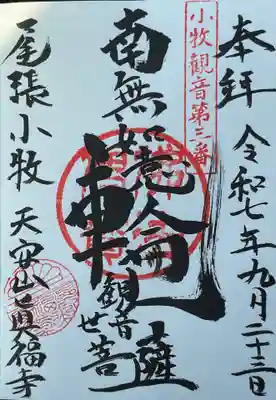 奉拝 令和七年九月二十三日
小牧観音第三番
南無如意輪観世音菩薩
尾張小牧 天安山真福寺